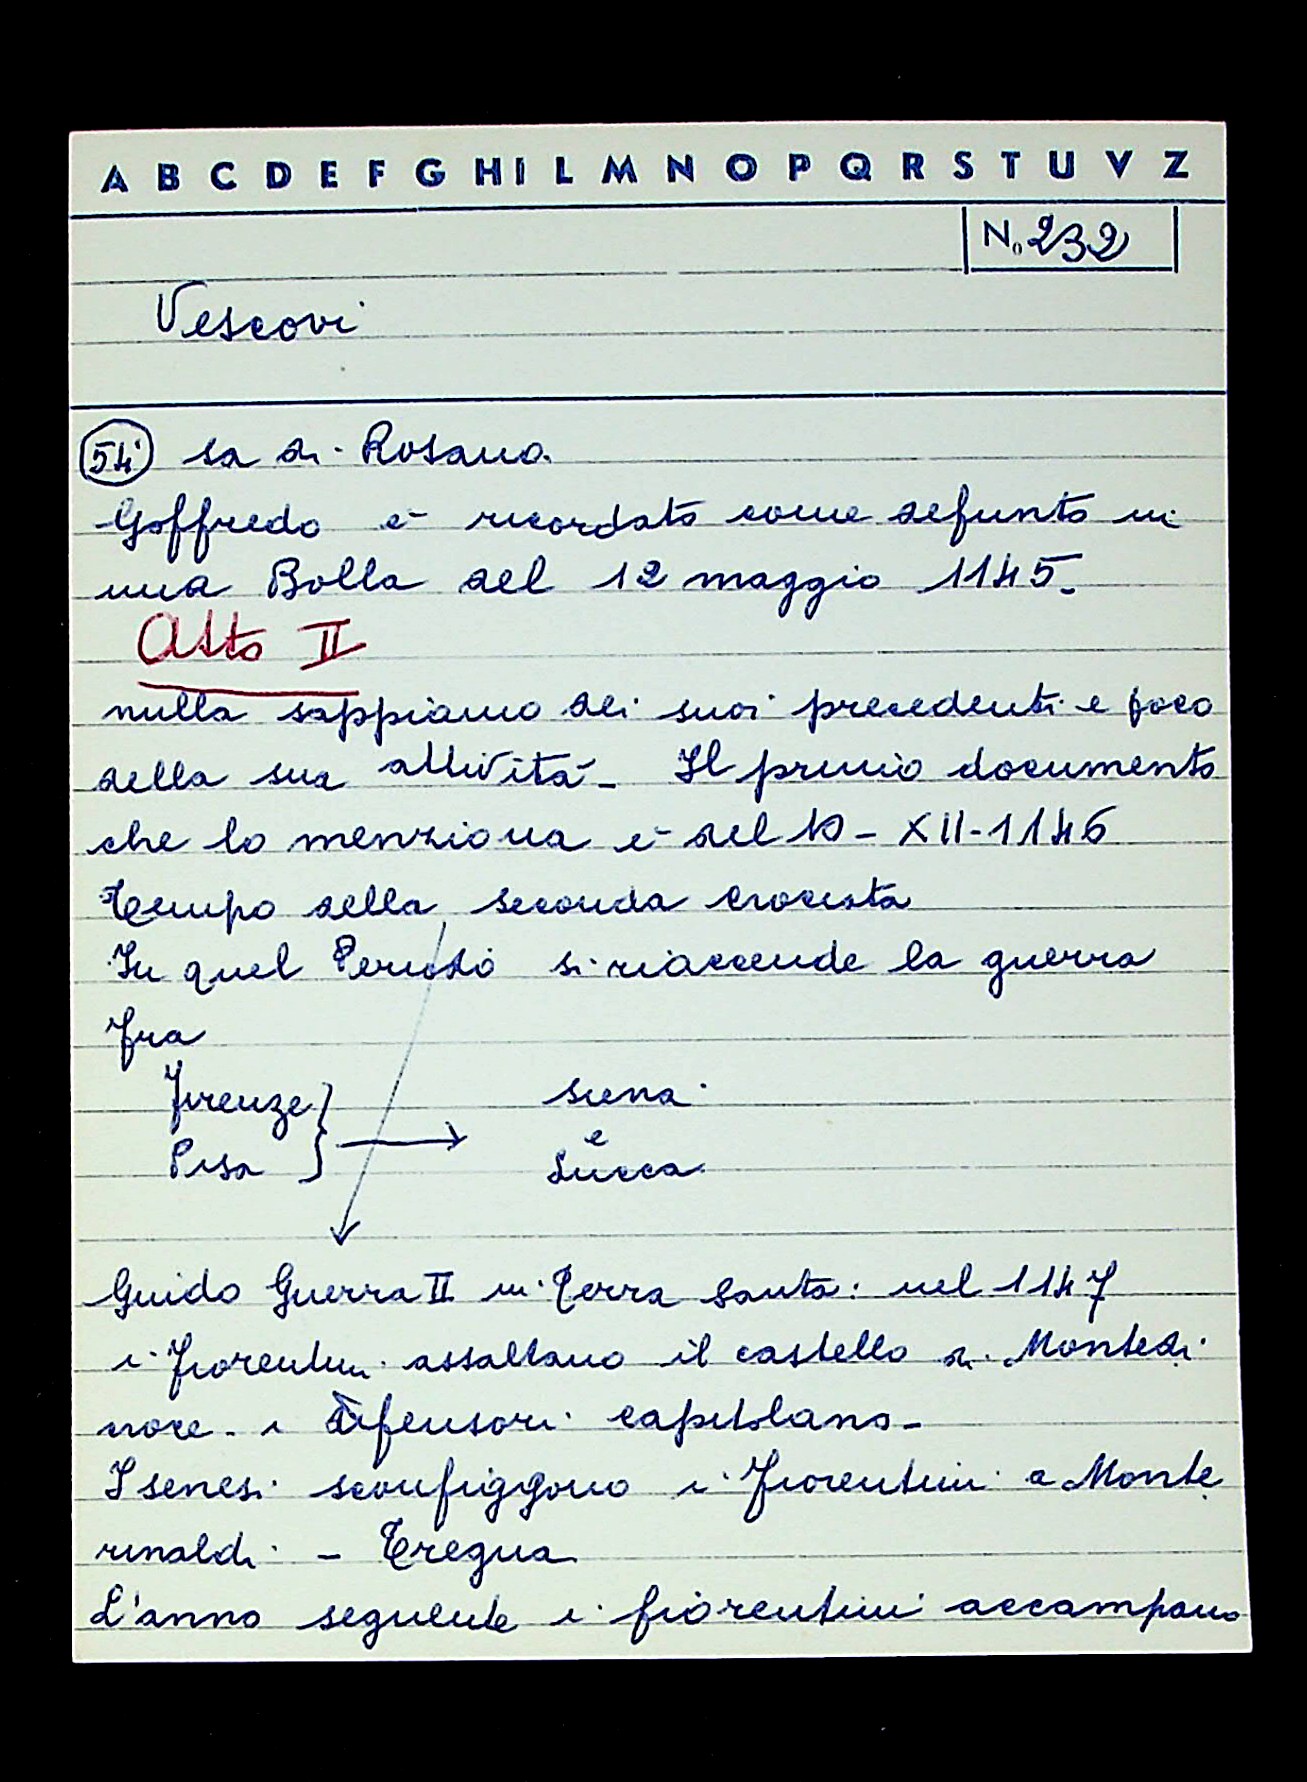 A B C D E F G H I L M N O P Q R S T U V Z
No 232
Vescovi
54 sa di Rosano.
Goffredo è ricordato come defunto in
una Bolla del 12 maggio 1145.
Atto II
nulla sappiamo dei suoi precedenti e poco
della sua attività - Il primo documento
che lo menziona è del 10 - XII - 1146
Tempo della seconda crociata
In quel Periodo si riaccende la guerra
fra
Firenze } → siena
e
Pisa Lucca
Guido Guerra II in Terra Santa: nel 1147
i Fiorentini assaltano il castello di Montedi
noce - i difensori capitolano -
I senesi sconfiggono i Fiorentini a Monte
rinaldi - Tregua
L'anno seguente i fiorentini accampano